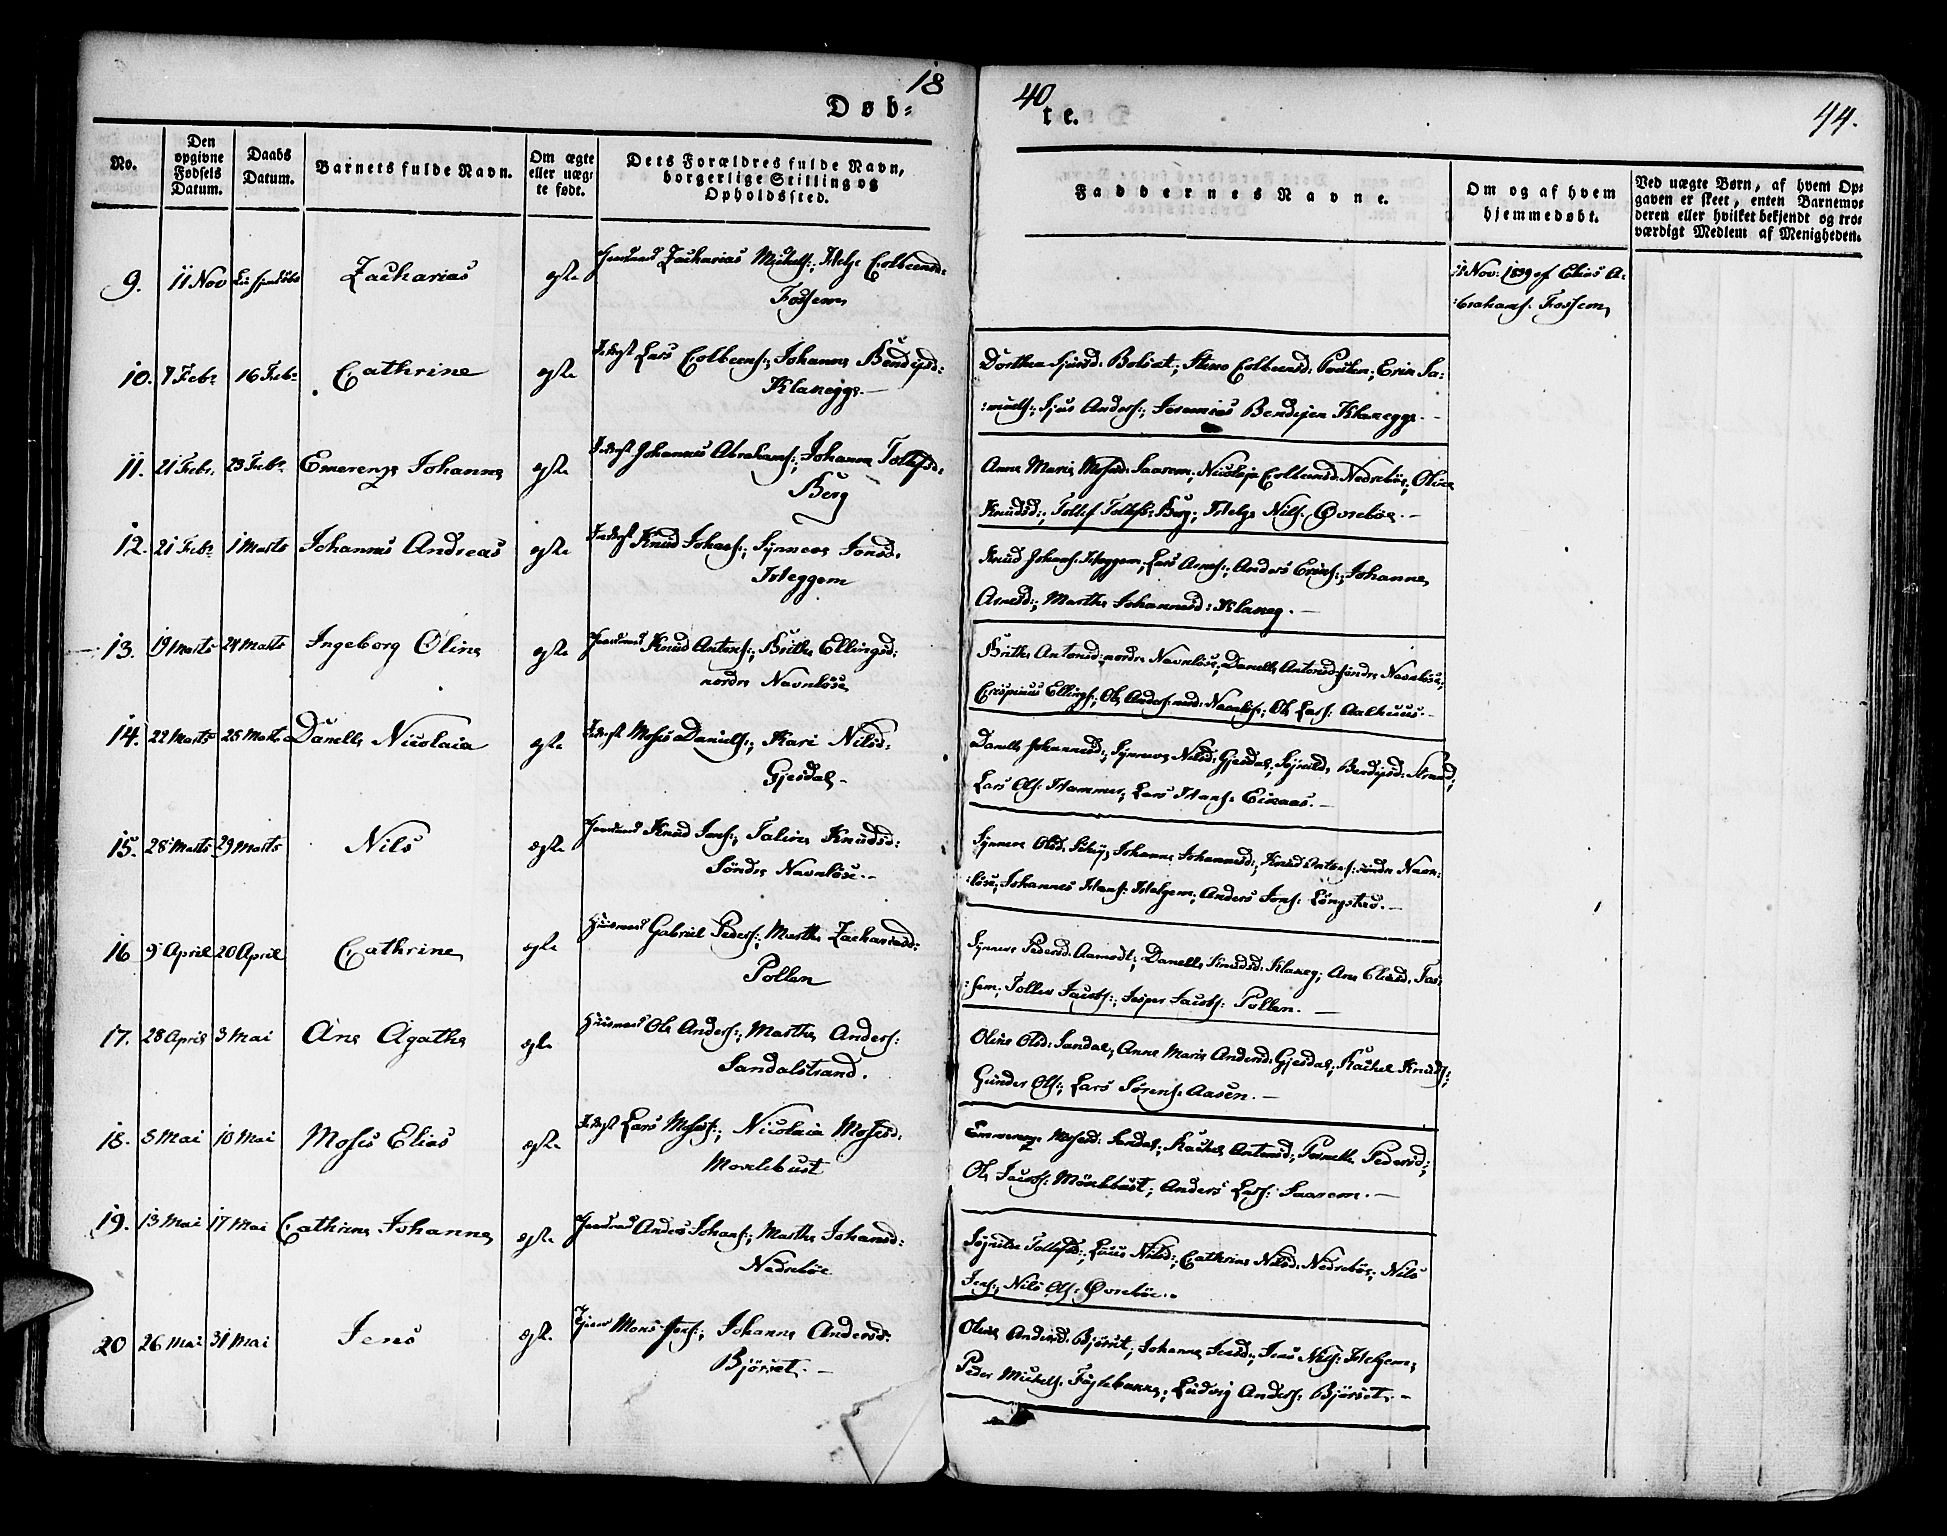 18
40
Døb-
te.
44.
No.
Den
opgivne
Fødsels
Datum.
Daabs
Datum.
Barnets fulde Navn.
Om ægte
eller uæg-
te født.
Dets Forældres fulde Navn,
borgerlige Stilling og
Opholdssted.
Faddernes Navne.
Om og af hvem
hjemmedøbt.
Ved uægte Børn, af hvem Op-
gaven er skeet, enten Barnemo-
deren eller hvilket bekjendt og tro-
værdigt Medlem af Menigheden.
9. 11 Nov Zacharias egte Zacharias Michels:, Helge Colbeensd:
Fossem
11 Nov: 1839 af Elias A-
:brahams: Fossem
10. 7 Febr 16 Febr Cathrine egte Lars Colbeens:, Johanne Bendixd:
Klanegge.-
Dorthea Bolsæt; Colbeensd: ; Erik Sa-
:muels:; Sjus Anders:; Jeremias Bendixen Klanegge.-
11. 21 Febr. 23 Febr Emerenze Johanne egte Johannes Abrahams:, Johanne Tollefsd:
Berg
Anne Marie Mosesd: Saarem; Nicolaja Colbeensd: Nedrebøe; Oline
Knudsd:; Tollef Tollefs: Berg; Helge Nils: Øvrebøe.-
12. 21 Febr 1 Marts Johannes Andreas egte Knud Johans:, Synneve Jonsd:
Heggem
Knud Johans: Heggem; Lars Arnes:; Anders Eriks:; Johanne
Arnesd:; Marthe Johannesd: Klaneg.-
13. 19 Marts 24 Marts Ingeborg Oline egte Knud Antons:; Brithe Ellingsd:
nordre Navnløse
Brithe Antonsd: nordre Navnløse; Danelle Antonsd: søndre Navnløse;
Crispinus Ellings:; Ole Anders: Navnløs:; Ole Lars: Aalhuus.-
14. 22 Marts 25 Marts Danelle Nicolaia egte Moses Daniels:; Kari Nilsd:
Gjesdal-
Danelle Johannesd:, Synneve Nilsd: Gjesdal; Bendixd: Strand;
Lars Ols: Hammer; Lars Hans: Eikaas.-
15. 28 Marts 29 Marts Nils egte Knud Jens:; Taline Knudsd:
Søndre Navnløse.-
Synneve Olsd: ; Johanne Johannesd:; Knud Antons: søndre Navn-
:løse; Johannes Hans: Helgem; Anders Jons: Løngstad.-
16 9 April 20 April Cathrine egte Huusmand Gabriel Peders:; Marthe Zachariasd:
Pollen
Synneve Pedersd: Aamodt; Danelle Knudsd: Klaneg; Ane Eliasd: Fos-
:sem; Tollev Jacobs:; Jesper Jacobs: Pollen.-
17. 28 April 3 Mai Ane Agathe egte Huusmand Ole Anders:; Marthe Anders:
Sandalstrand.
Oline Olsd: Sandal; Anne Marie Andersd: Gjesdal; Rachel Knuds:;
Gunder Ols:; Lars Sørens: Aasen.-
18. 8 Mai 10 Mai Moses Elias egte Lars Moses:; Nicolaia Mosesd:
Moxlebust
Emmerenze Mosesd: Sandal; Rachel Antonsd:; Pernelle Pedersd:;
Ole Jacobs: Møxlebust; Anders Lars: Saarem.-
19. 13 Mai 17 Mai Cathrine Johanne egte Anders Johans:; Marthe Johansd:
Nedrebøe
Tollefsd:; Nilsd:; Cathrine Nilsd: Nedrebøe; Nils
Jens:, Nils Ols: Øvrebøe.
20 26 Mai 31 Mai Jens egte Mons Jens:; Johanne Andersd:
Bjørset.-
Oline Andersd: Bjørset; Johanne Jensd:; Jens Nils: Helgem;
Peder Michels: Føglebakke; Ludvig Anders: Bjørset.-